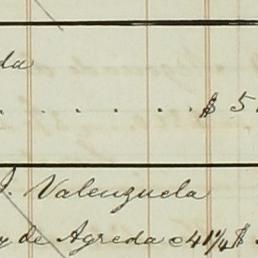 da
. . . . . . $ 5
J. Valenzuela
y de Agreda c 41 1/4 $